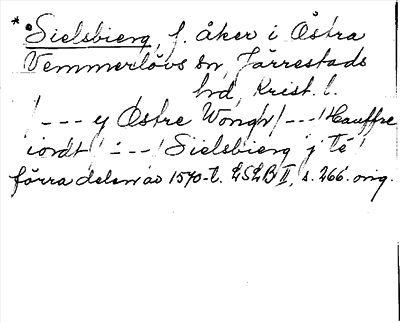 * Sielsbierg, f. åker i Östra
Vemmerlövs sn, Järrestads
hd, Krist. l.
/--- y Østre Wongh/---/ Hauffre
iordt /---/ Sielsbierg j té
förra delen av 1570-t. LSLB II, s. 266. orig.